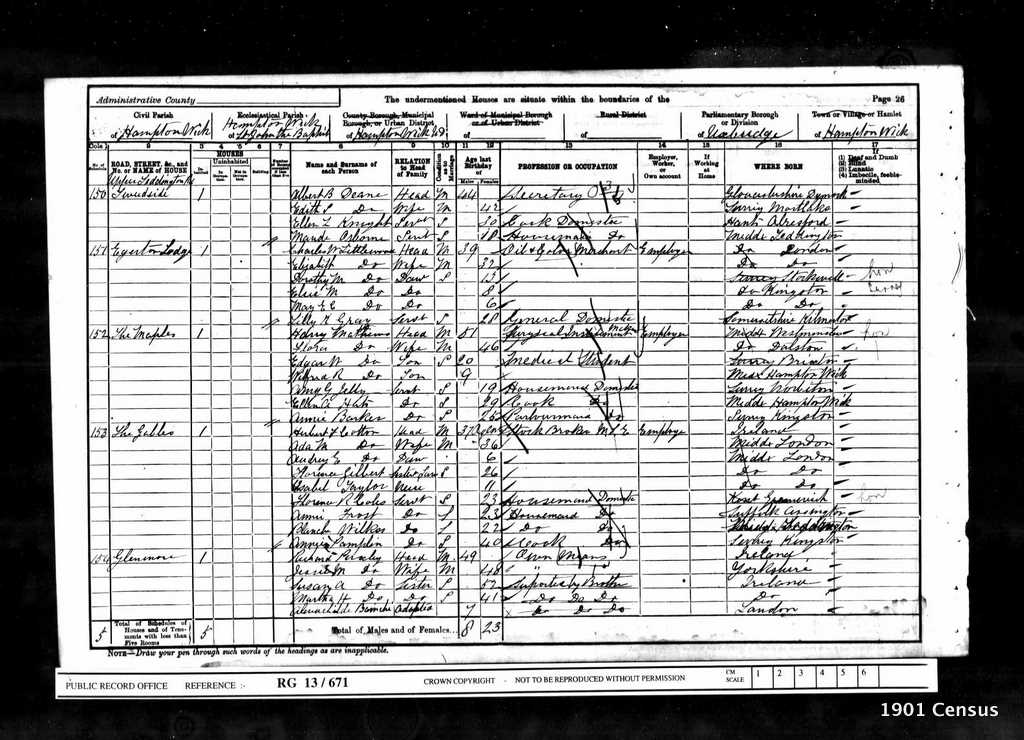 Administrative County
The undermentioned Houses are situate within the boundaries of the
Page 26
Civil Parish
of Hampton Wick
Ecclesiastical Parish
of Hampton Wick St John the Baptist
County Borough, Municipal Borough, or Urban District
of Hampton Wick U.D.
Ward of Municipal Borough or of Urban District
of
Rural District
of
Parliamentary Borough or Division
of Uxbridge
Town or Village or Hamlet
of Hampton Wick
Cols. 1 2 3 4 5 6 7 8 9 10 11 12 13 14 15 16 17
ROAD, STREET, &c., and No. or NAME of HOUSE
HOUSES
Uninhabited
Name and Surname of each Person
RELATION to Head of Family
Condition as to Marriage
Age last Birthday of
Males Females
PROFESSION OR OCCUPATION
Employer, Worker, or Own account
If Working at Home
WHERE BORN
If (1) Deaf and Dumb (2) Blind (3) Lunatic (4) Imbecile, feeble-minded
150 Tweedside 1 Albert B Deane Head M 44 Secretary Gloucestershire Dymock
Edith S Do Wife M 42 Surrey Mortlake
Ellen L Knight Servt S 30 Cook Domestic Hants Alresford
Maude Osborne Servt S 18 Housemaid Do Middx Teddington
151 Egerton Lodge 1 Charles W Littlewood Head M 39 Oil & Color Merchant Employer Do London
Elizabeth Do Wife M 32 Do Do
Dorothy M Do Daur S 13 Surrey Stockwell
Elsie M Do Do 8 Do Kingston
May E Do Do 6 Do Do
Lilly K Gray Servt S 28 General Domestic Somersetshire Kilmersdon
152 The Maples 1 Harry Mathews Head M 51 Surgical Instrument Maker Employer Middx Westminster
Flora Do Wife M 46 Do Dalston
Edgar W Do Son S 20 Medical Student Surrey Brixton
Wilfred R Do Son 9 Middx Hampton Wick
Amy G Selby Servt S 19 Housemaid Domestic Surrey Norbiton
Ellen A Do S 29 Cook Do Middx Hampton Wick
Annie Barker Do S 25 Parlourmaid Do Surrey Kingston
153 The Gables 1 Herbert F Cotton Head M 37 Stock Broker M S E Employer Ireland
Ada M Do Wife M 36 Middx London
Audrey E Do Daur 6 Middx London
Florence Gilbert Sister-Law S 26 Do Do
Isabel Taylor Niece 11 Do Do
Florence R Coles Servt S 23 Housemaid Domestic Kent Greenwich
Annie Frost Do S 23 Housemaid Do Suffolk Assington
Blanch Wilkes Do S 22 Do Do Middx Teddington
Pamplin Do S 40 Cook Do Surrey Kingston
154 Glenmore 1 Head M 49 Own Means Ireland
Jessie M Do Wife M 48 " Yorkshire
Susan A Do Sister S 52 Supported by Brother Ireland
Martha H Do Do S 41 Do Do Do Do
Adoptee 7 Do Do Do London
5 Total of Schedules of Houses and of Tenements with less than Five Rooms 5 Total of Males and of Females... 8 23
NOTE—Draw your pen through such words of the headings as are inapplicable.
PUBLIC RECORD OFFICE REFERENCE :- RG 13/671 CROWN COPYRIGHT - NOT TO BE REPRODUCED WITHOUT PERMISSION CM SCALE 1 2 3 4 5 6
1901 Census